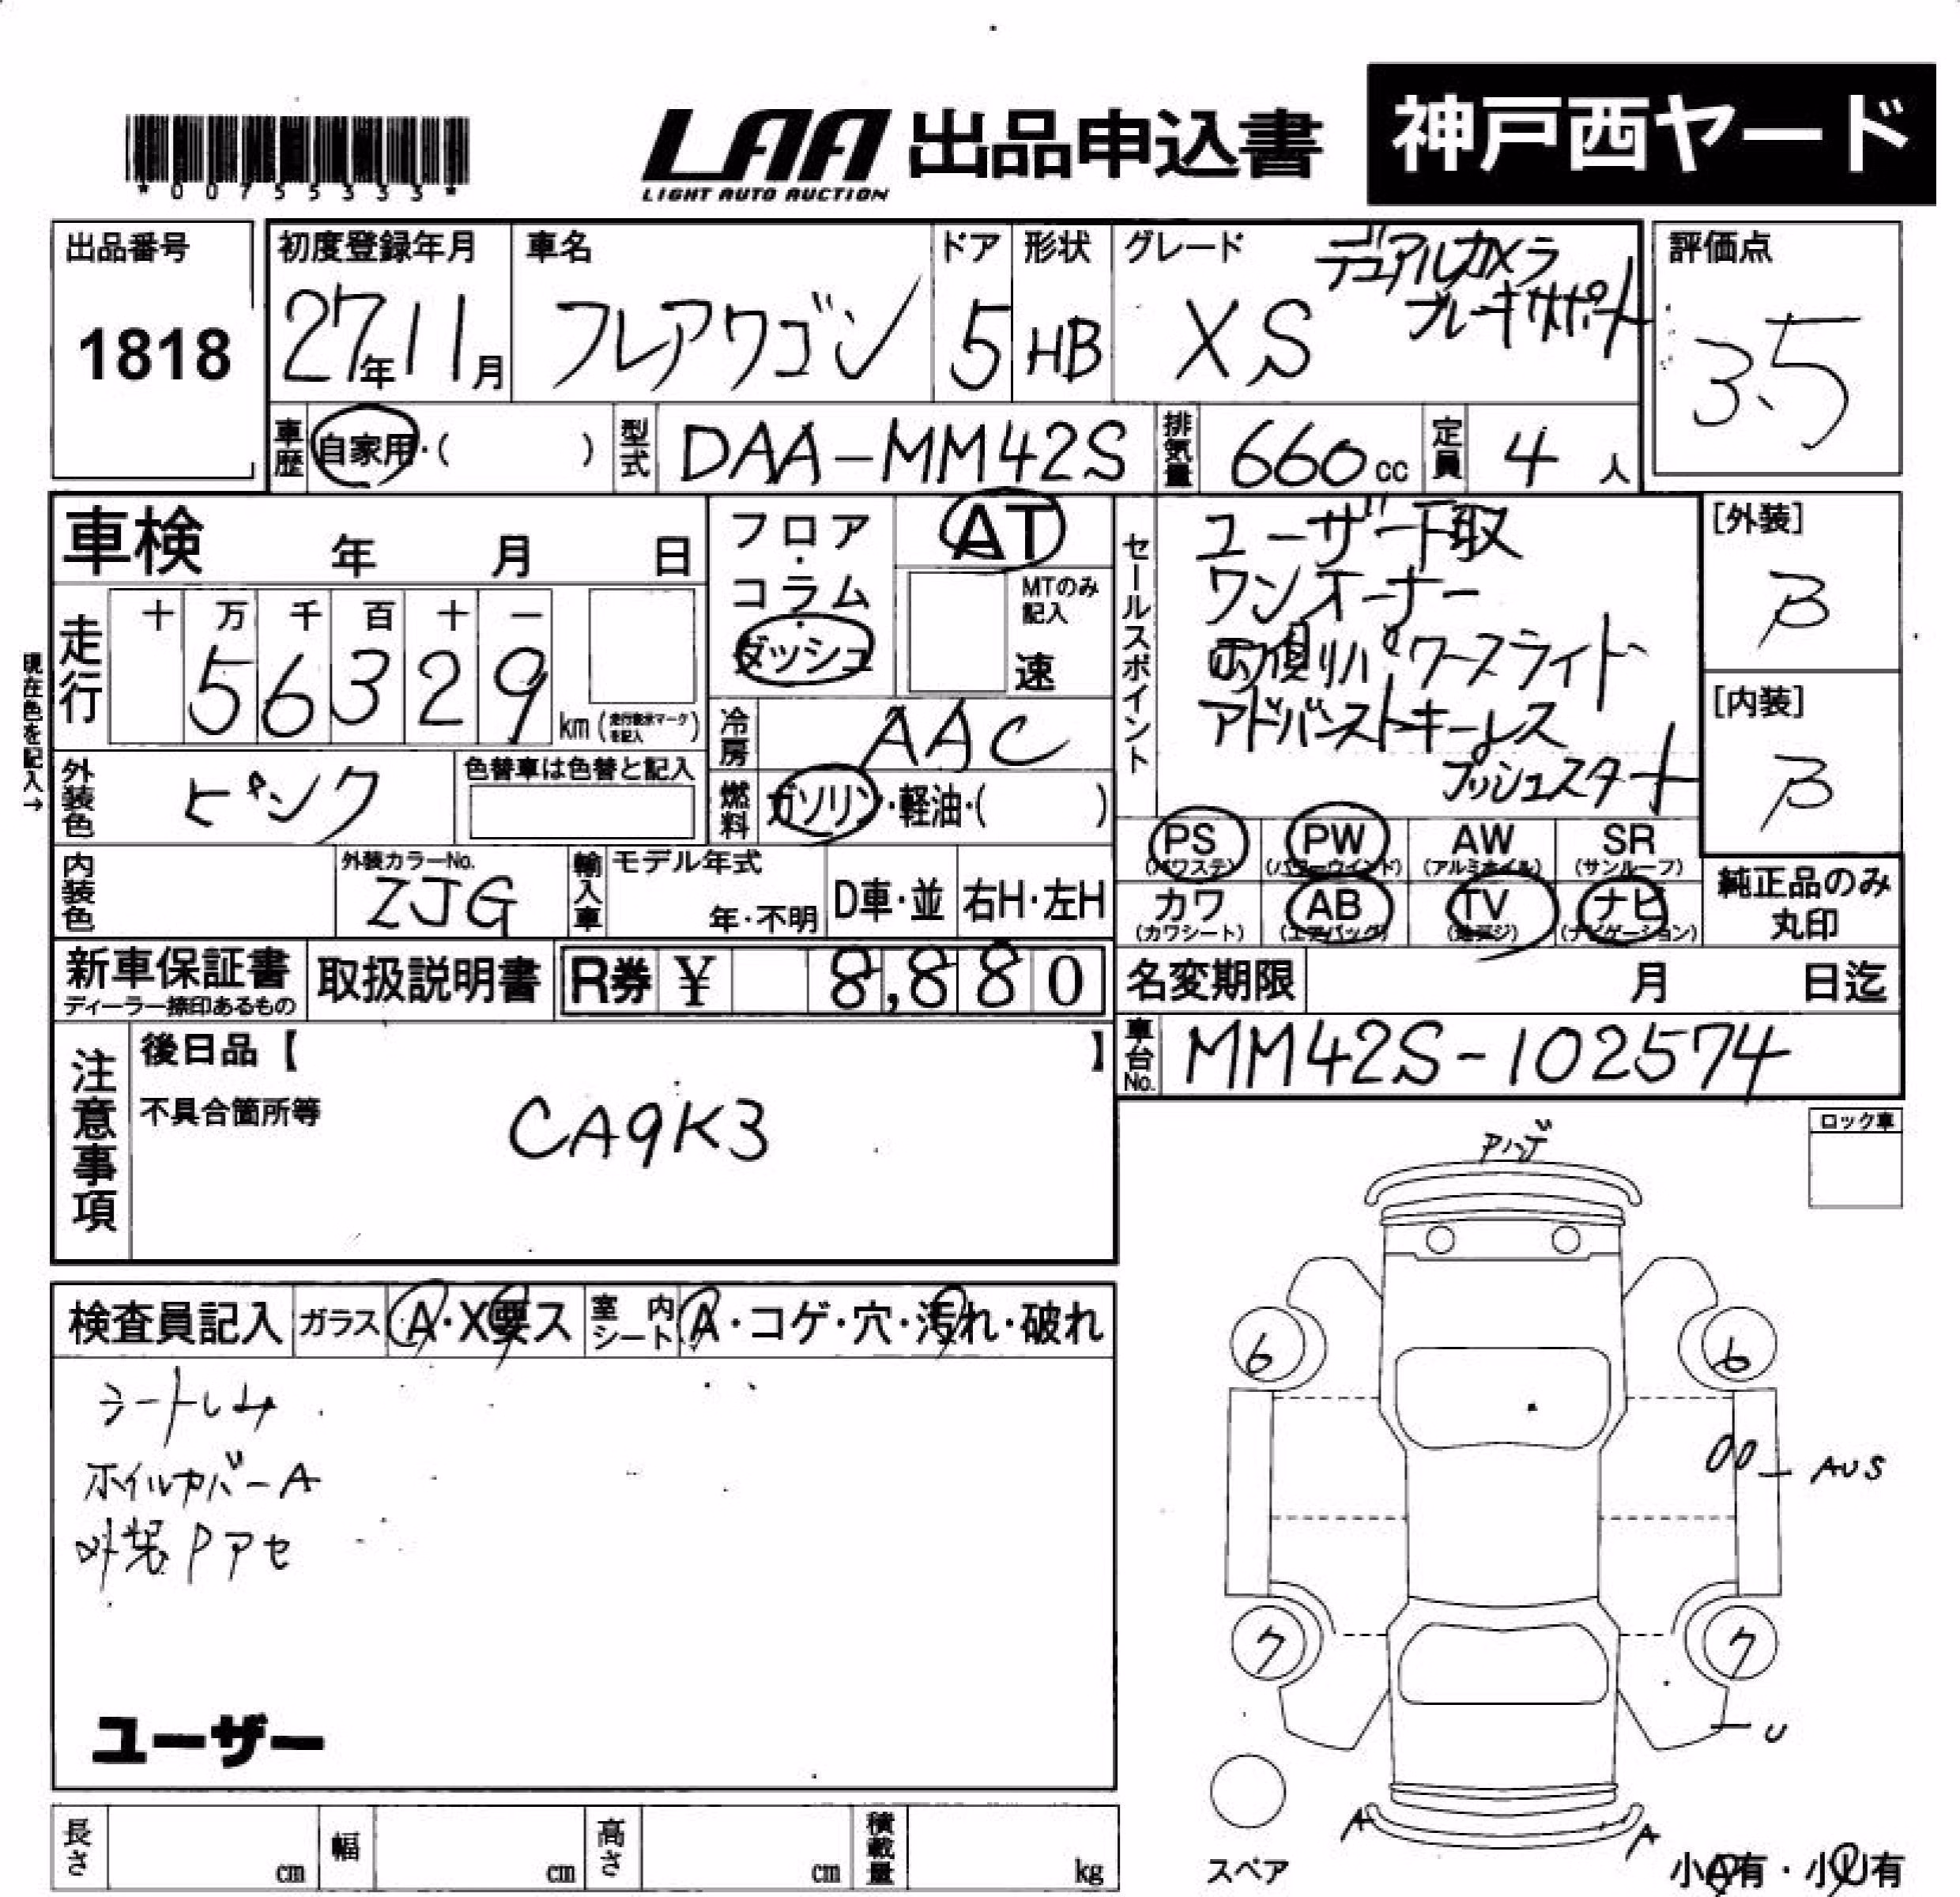 *00755333*
LAA 出品申込書 神戸西ヤード
LIGHT AUTO AUCTION
出品番号
1818
初度登録年月
27年11月
車名
フレアワゴン
ドア
5
形状
HB
グレード
XS
デュアルカメラ
ブレーキサポート
評価点
3.5
車歴 自家用・( )
型式 DAA-MM42S
排気量 660cc
定員 4人
車検 年 月 日
フロア・コラム・ダッシュ
AT
MTのみ記入
速
走行
十 万 千 百 十 一
5 6 3 2 9 km
現在色を記入→
冷房 AAC
外装色 ピンク
色替車は色替と記入
燃料 ガソリン・軽油・( )
セールスポイント
ユーザー下取
ワンオーナー
両側パワースライド
アドバンストキーレス
プッシュスタート
[外装]
B
[内装]
B
内装色
外装カラーNo.
ZJG
輸入車
モデル年式
年・不明
D車・並
右H・左H
PS (パワステ)
PW (パワーウインド)
AW (アルミホイル)
SR (サンルーフ)
カワ (カワシート)
AB (エアバッグ)
TV (地デジ)
ナビ (ナビゲーション)
純正品のみ
丸印
新車保証書
ディーラー捺印あるもの
取扱説明書
R券 ¥ 8,880
名変期限 月 日迄
車台No. MM42S-102574
注意事項
後日品【 】
不具合箇所等
CA9K3
ロック車
検査員記入
ガラス A・X要ス
室内シート A・コゲ・穴・汚れ・破れ
シートシム
ホイルカバーA
外装Pアセ
ユーザー
6 6
AUS
7 7
U
A A
スペア
小A有・小U有
長さ cm
幅 cm
高さ cm
積載量 kg